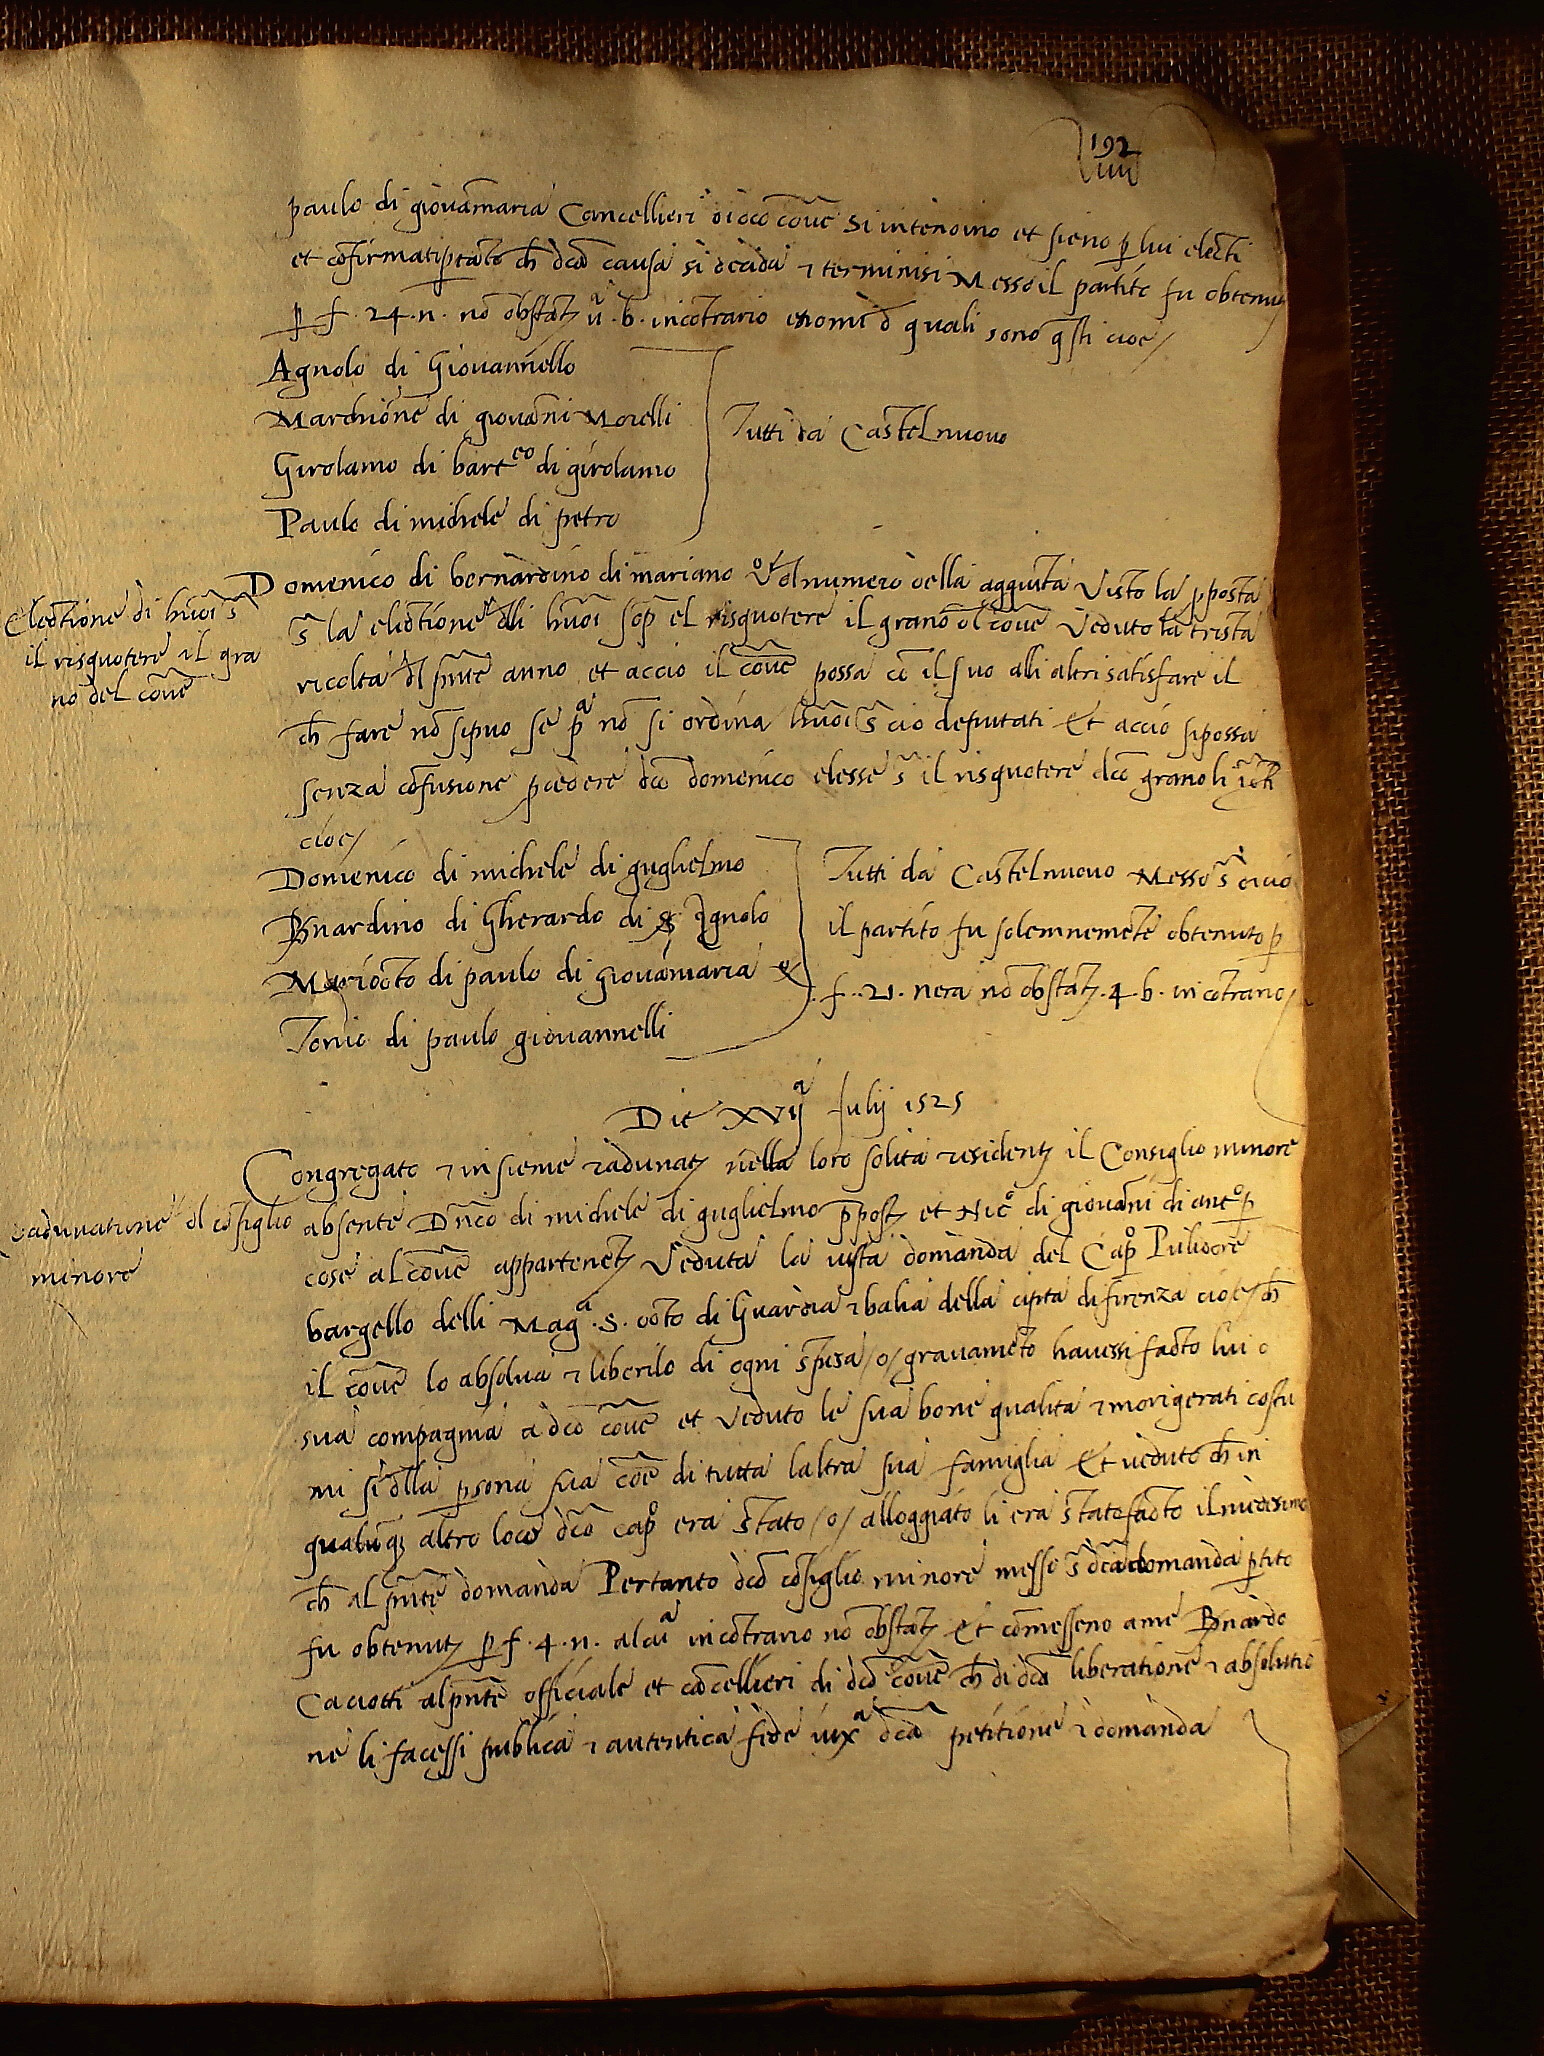 192
iiii
paulo di giovamaria Cancellieri di dco cōue si intendino et sieno p lui electi
et cōfirmati ptāto ch dcā causa si decida & terminisi Messo il partito fu obtenut
p f. 24. n. nō obstāt ua. b. incōtrario nomi d quali sono qsti cioe/
Agnolo di Giovannello
Marchionne di giouāni Morelli
Girolamo di barteo di girolamo
Paulo di michele di petro
Tutti da Castelnuouo
Domenico di bernardino di mariano dl numero della aggiuta Visto la pposta
Electione di huōi s
il risquotere il gra
no del cōue
s la electione dlli huōi sop el risquotere il grano dl cōue Veduto la trista
ricolta dl pnte anno et accio il cōue possa cō il suo alli altri satisfare il
ch fare nō si puo se pa nō si ordina huōi s cio deputati Et accio si possa
senza cōfusione pcedere dco domenico elesse s il risquotere dco grano li
cioe/
Domenico di michele di guglielmo
Bnardino di Gherardo di Agnolo
Mariocto di paulo di Giouāmaria &
Tonio di paulo giouannelli
Tutti da Castelnuouo Messo s di cio
il partito fu solemnemēte obtenuto p
f. 21. nera nō obstāt. 4. b. in cōtrario/
Die XVija Julij 1525
Congregato & insieme radunat nella loro solita resident il Consiglio minore
radunatione dl cōsiglio
minore
absente Dnico di michele di guglielmo ppost et Nico di giouāni di anto p
cose al cōue appartenēt Veduta la iusta domanda del Capo Pulidore
bargello delli Maga. S. octo di Guardia & balia della cipta di firenza cioe/ ch
il cōue lo absolua & liberilo di ogni spesa /o/ grauamēto hauessi facto lui o
sua compagnia a dco cōue et Veduto le sua bone qualita & morigerati costu
mi si dlla psona sua cōe di tutta laltra sua famiglia Et ueduto ch in
qualūq altro loco dco capo era stato /o/ alloggiato li era stato facto il medesimo
ch al pnte domanda Pertanto dco cōsiglio minore messo s dcā domanda ptito
fu obtenut p f. 4. n. alcua in cōtrario nō obstāt Et cōmesseno a me Bnardo
Caciotti al pnte officiale et cācellieri di dco cōue ch di dcā liberatione & absolutio
ne li facessi publica & autentica fede iuxa dcā petitione & domanda